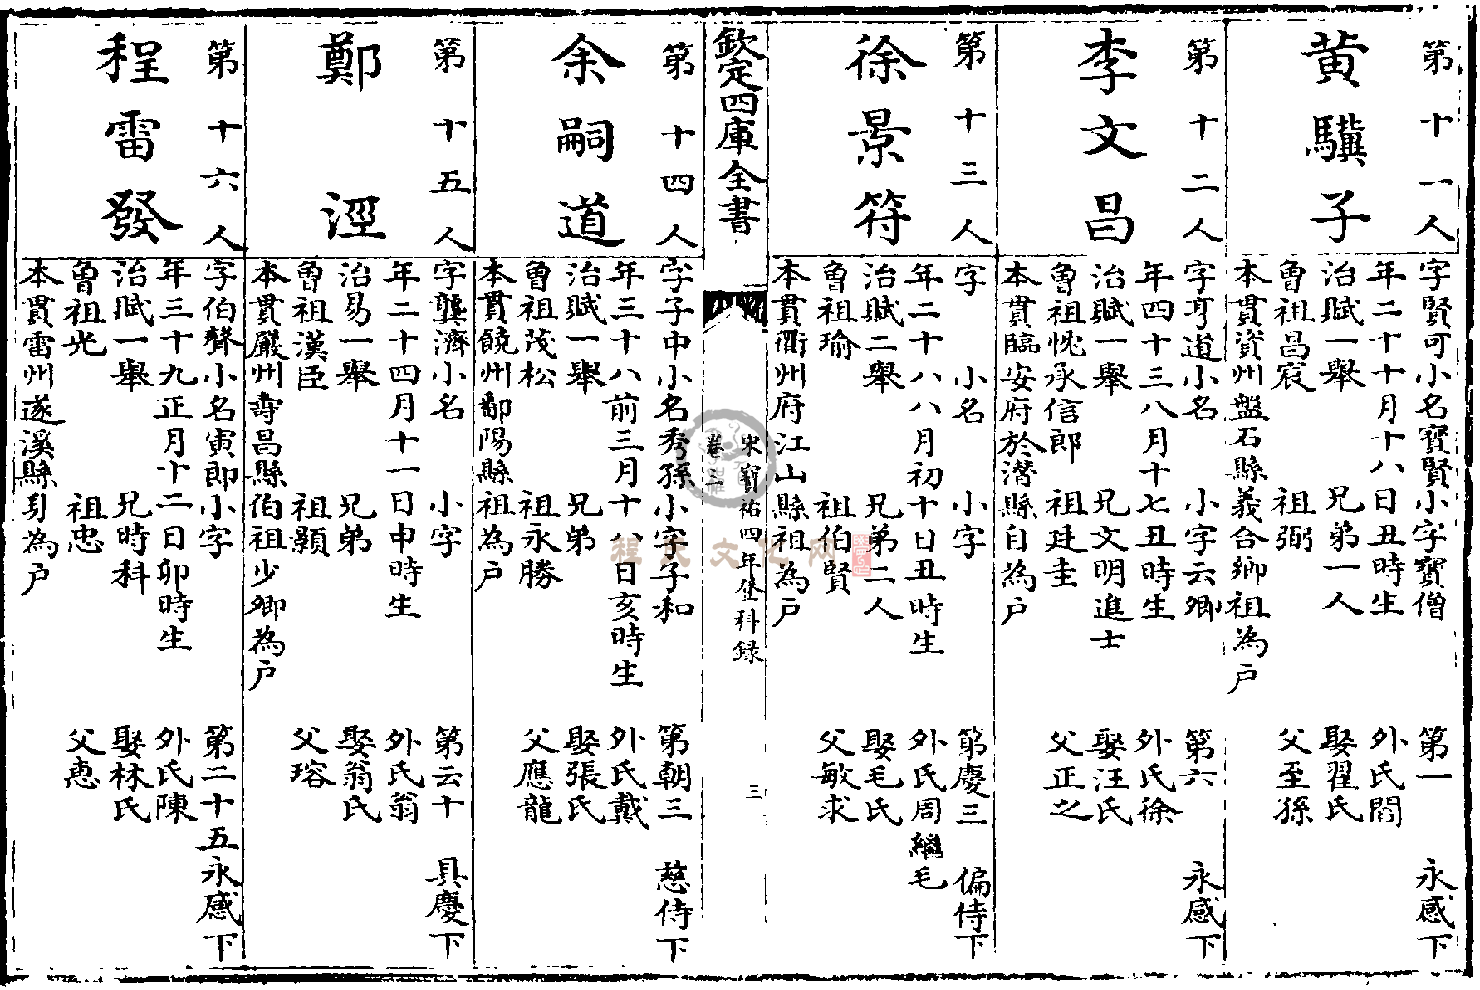 第十一人
黄驥子
字賢可小名寳賢小字寳僧
第一
永感下
年二十十月十八日丑時生
外氏閻
治賦一舉
兄弟一人
娶翟氏
曾祖昌宸
祖弼
父至孫
本貫資州盤石縣義合鄉祖為户
第十二人
李文昌
字可道小名
小字云卿
第六
永感下
年四十三八月十七丑時生
外氏徐
治賦一舉
兄文明進士
娶汪氏
曾祖忱承信郎
祖廷圭
父正之
本貫臨安府於潛縣自為户
第十三人
徐景符
字
小名
小字
第慶三
偏侍下
年二十八八月初十日丑時生
外氏周繼毛
治賦二舉
兄弟二人
娶毛氏
曾祖瑜
祖伯賢
父敏求
本貫衢州府江山縣祖為户
欽定四庫全書
宋寳祐四年登科録
卷三
三
第十四人
余嗣道
字子中小名秀孫小字子和
第朝三
慈侍下
年三十八前三月十八日亥時生
外氏戴
治賦一舉
兄弟
娶張氏
曾祖茂松
祖永勝
父應龍
本貫饒州鄱陽縣祖為户
第十五人
鄭涇
字龔濟小名
小字
第云十
具慶下
年二十四月十一日申時生
外氏翁
治易一舉
兄弟
娶翁氏
曾祖漢臣
祖顯
父瑢
本貫嚴州壽昌縣伯祖少卿為户
第十六人
程雷發
字伯聲小名寅郎小字
第二十五永感下
年三十九正月十二日卯時生
外氏陳
治賦一舉
兄時科
娶林氏
曾祖光
祖忠
父惠
本貫雷州遂溪縣躬為户
程氏文化网